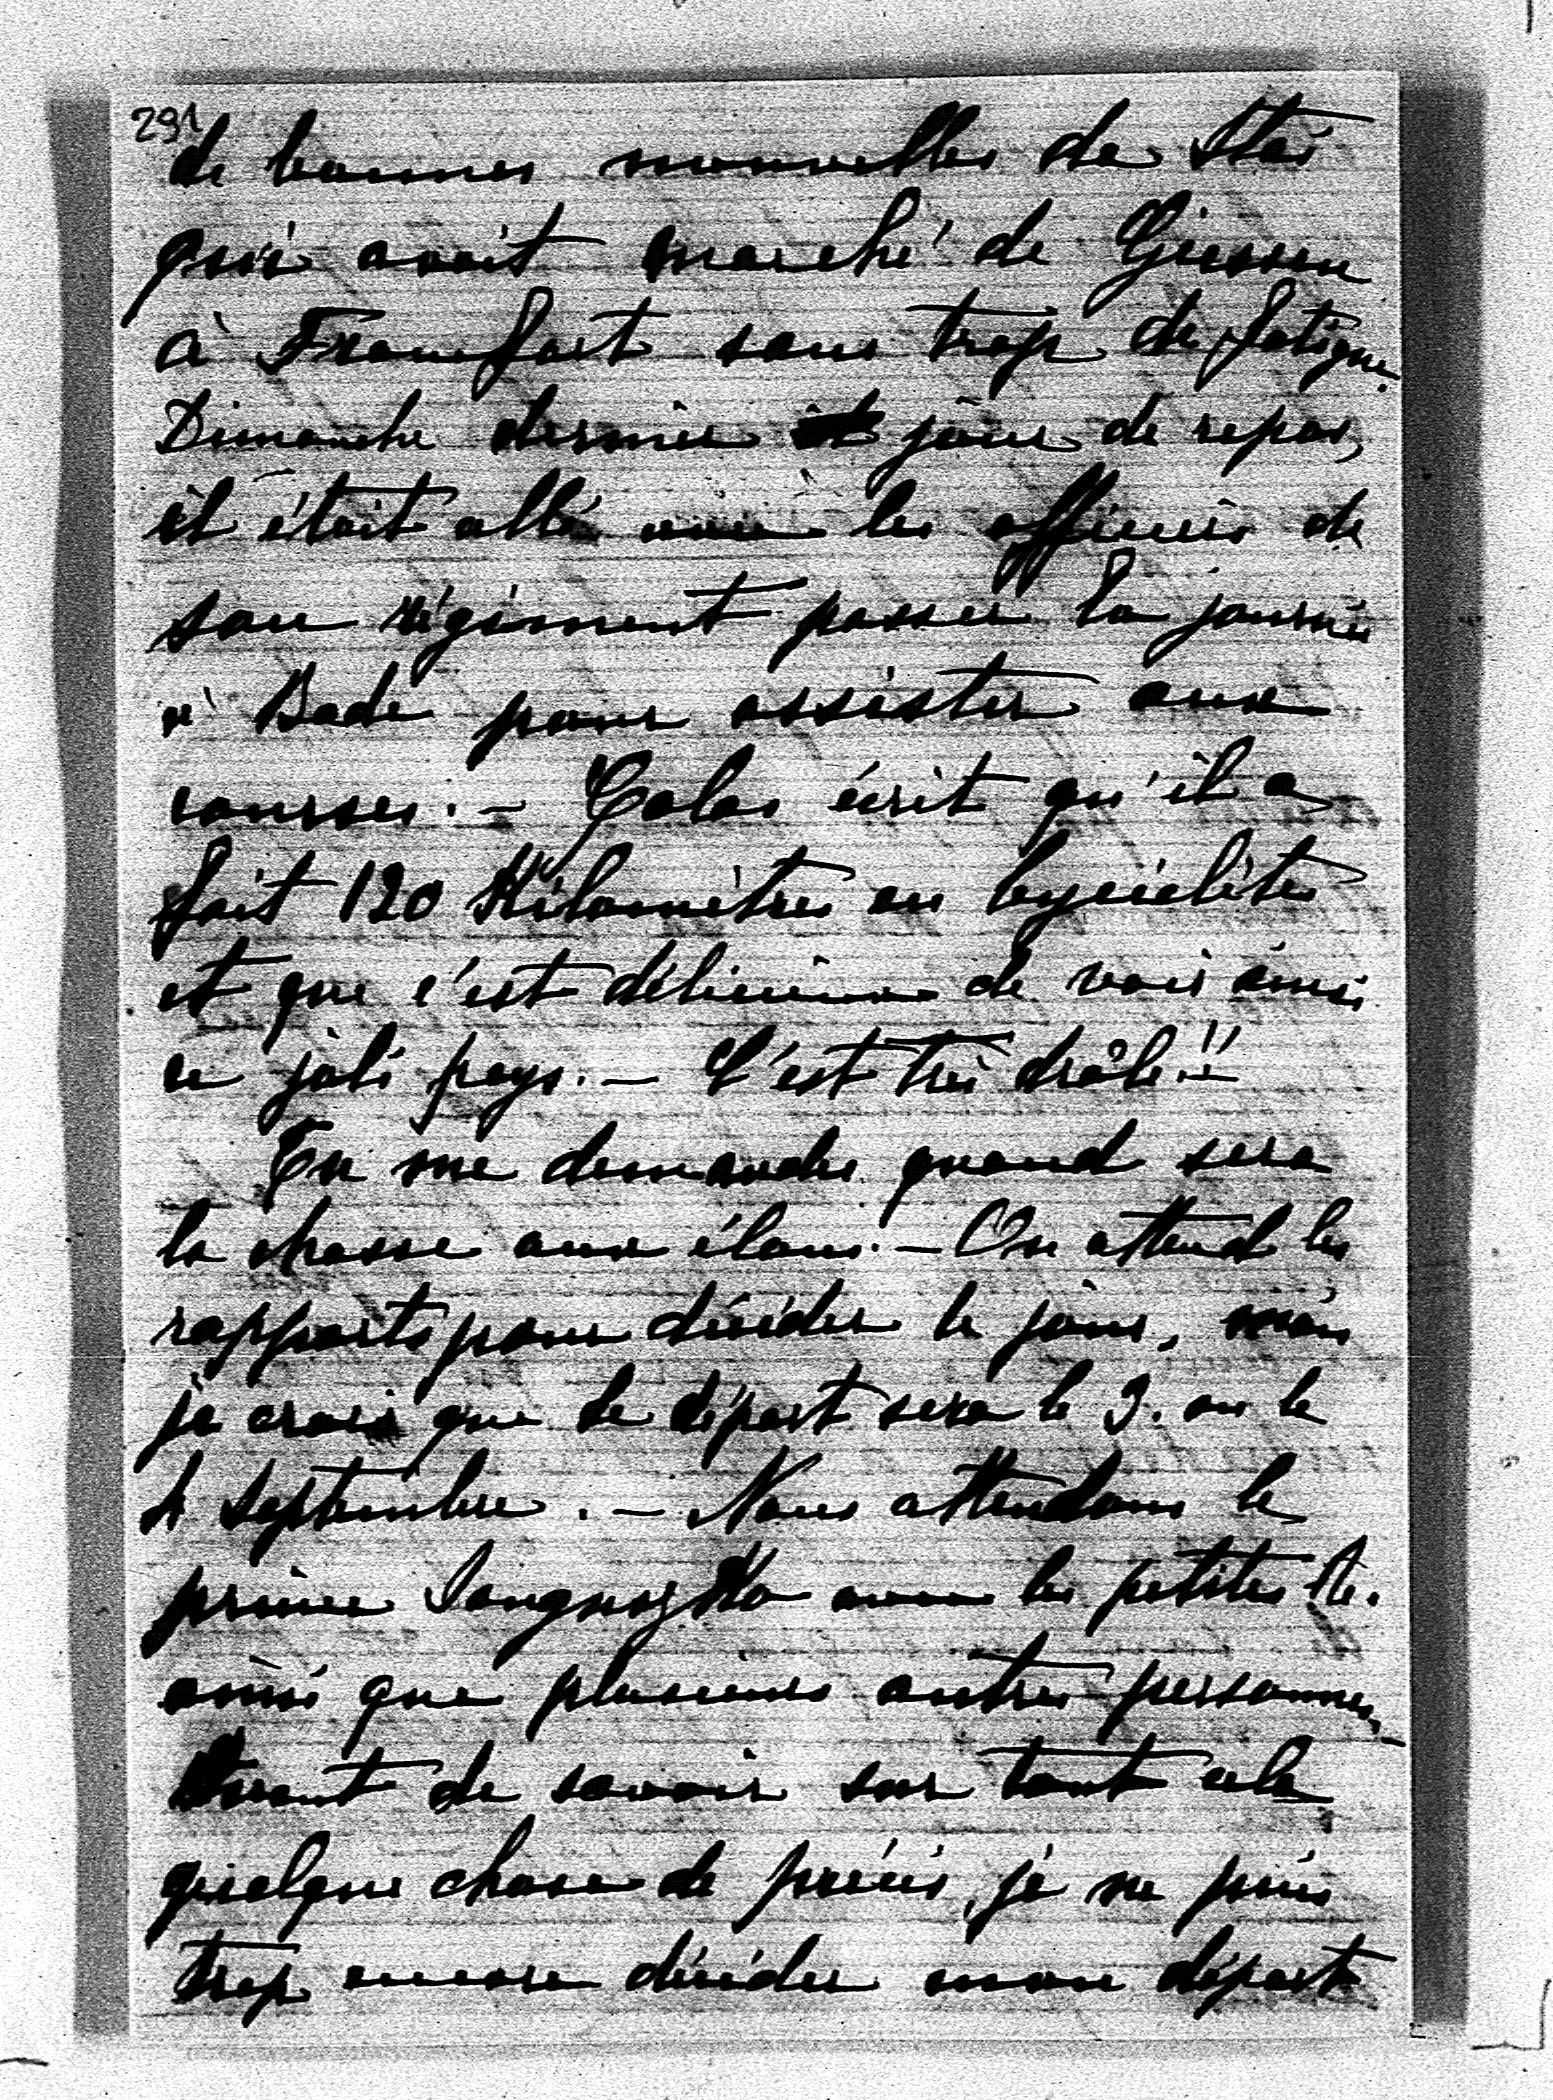 291
de bonnes nouvelles de Staś
qui avait marché de Giessen
à Francfort sans trop de fatigue.
Dimanche dernier jour de repos,
il était allé avec les officiers de
son régiment passer la journée
à Bade pour assister aux
courses. – Calas écrit qu'il a
fait 120 Kilomètres en bycielète
et que c'est délicieux de voir ainsi
ce joli pays. – C'est très drôle!!
Tu me demandes quand sera
la chasse aux élans. – On attend les
rapports pour décider le jour, mais
je crois que le départ sera le 3. ou le
4 septembre. – Nous attendons le
prince Sanguszko avec les petites R.
ainsi que plusieurs autres personnes,
Avant de savoir sur tout cela
quelque chose de précis, je ne puis
trop encore décider mon départ